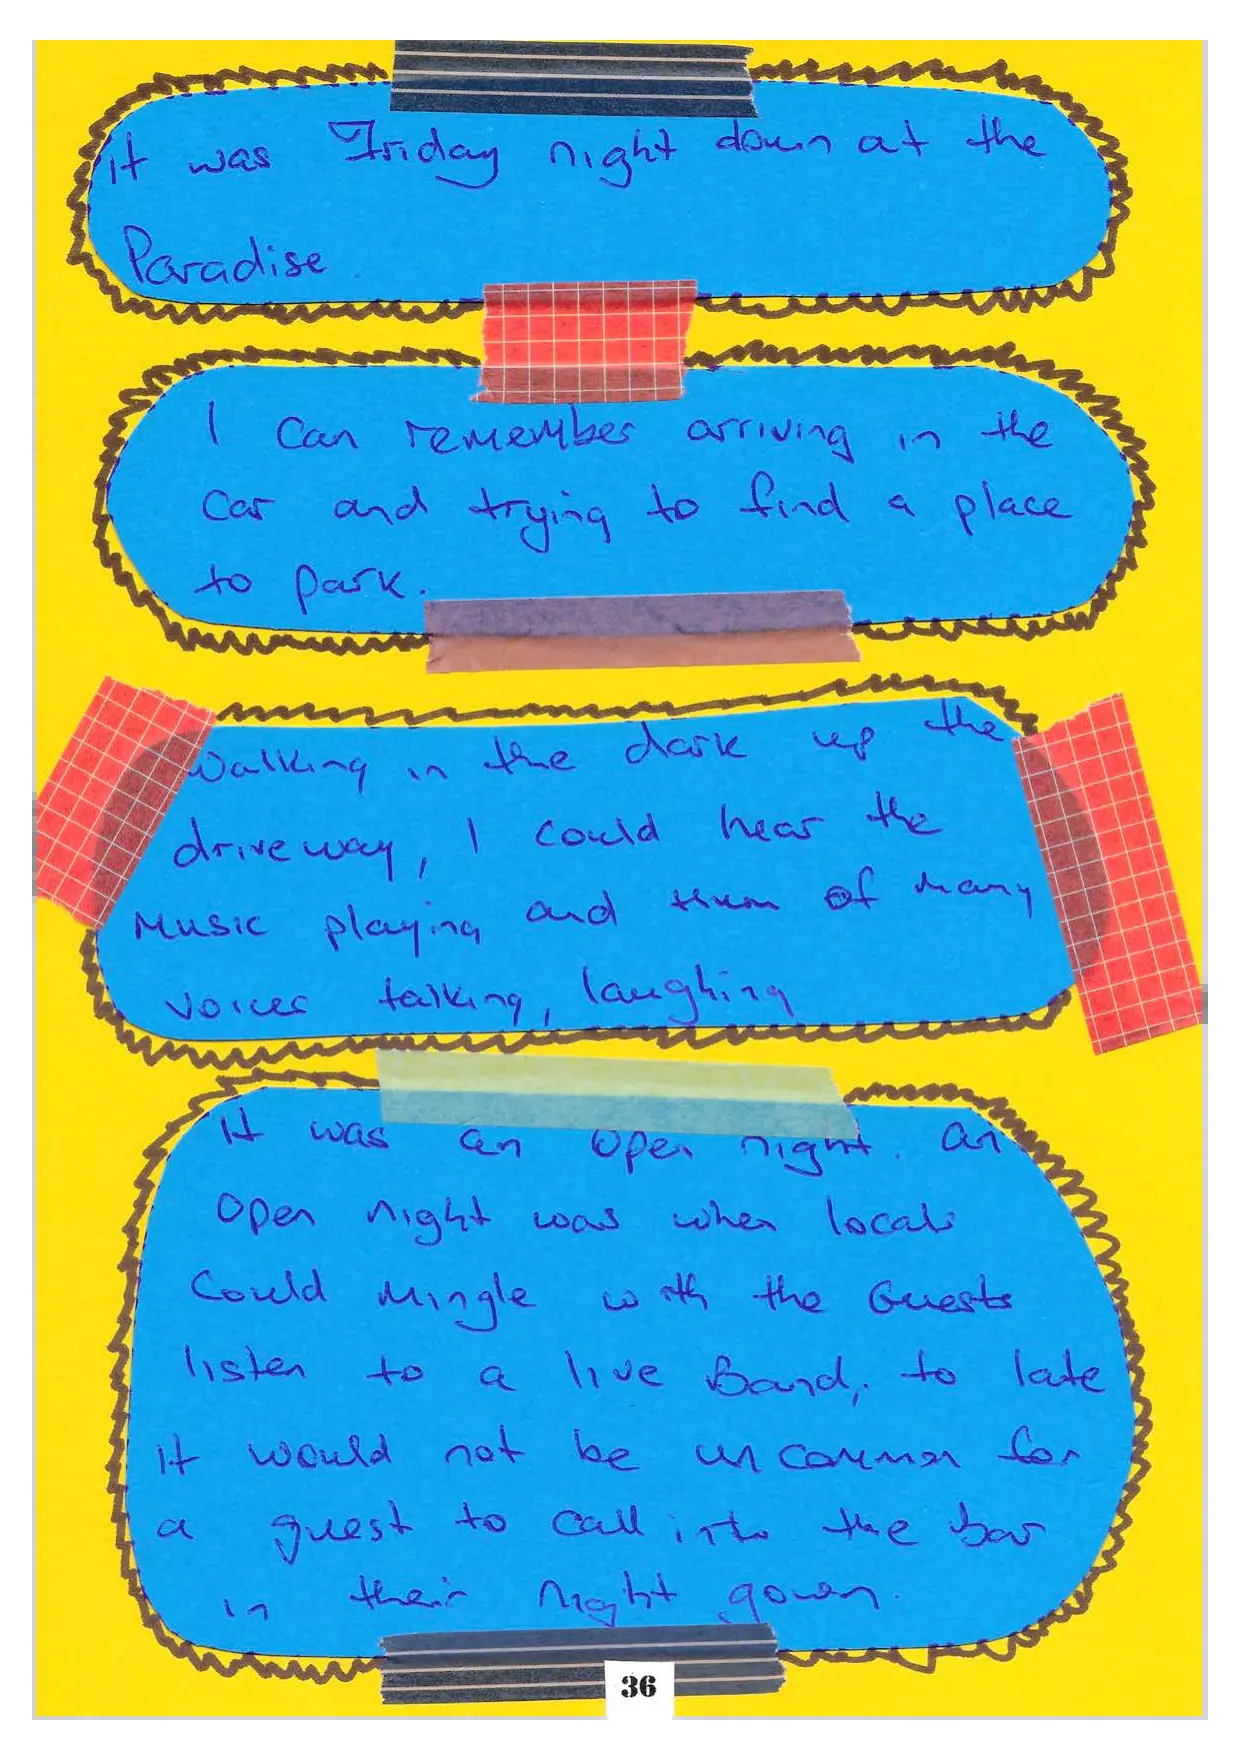 it was Friday night down at the
Paradise.
I can remember arriving in the
car and trying to find a place
to park.
Walking in the dark up the
driveway, I could hear the
music playing and hum of many
voices talking, laughing
it was an open night. an
open night was when locals
could mingle with the Guests
listen to a live Band, to late
it would not be un common for
a guest to call into the bar
in their night gown.
36